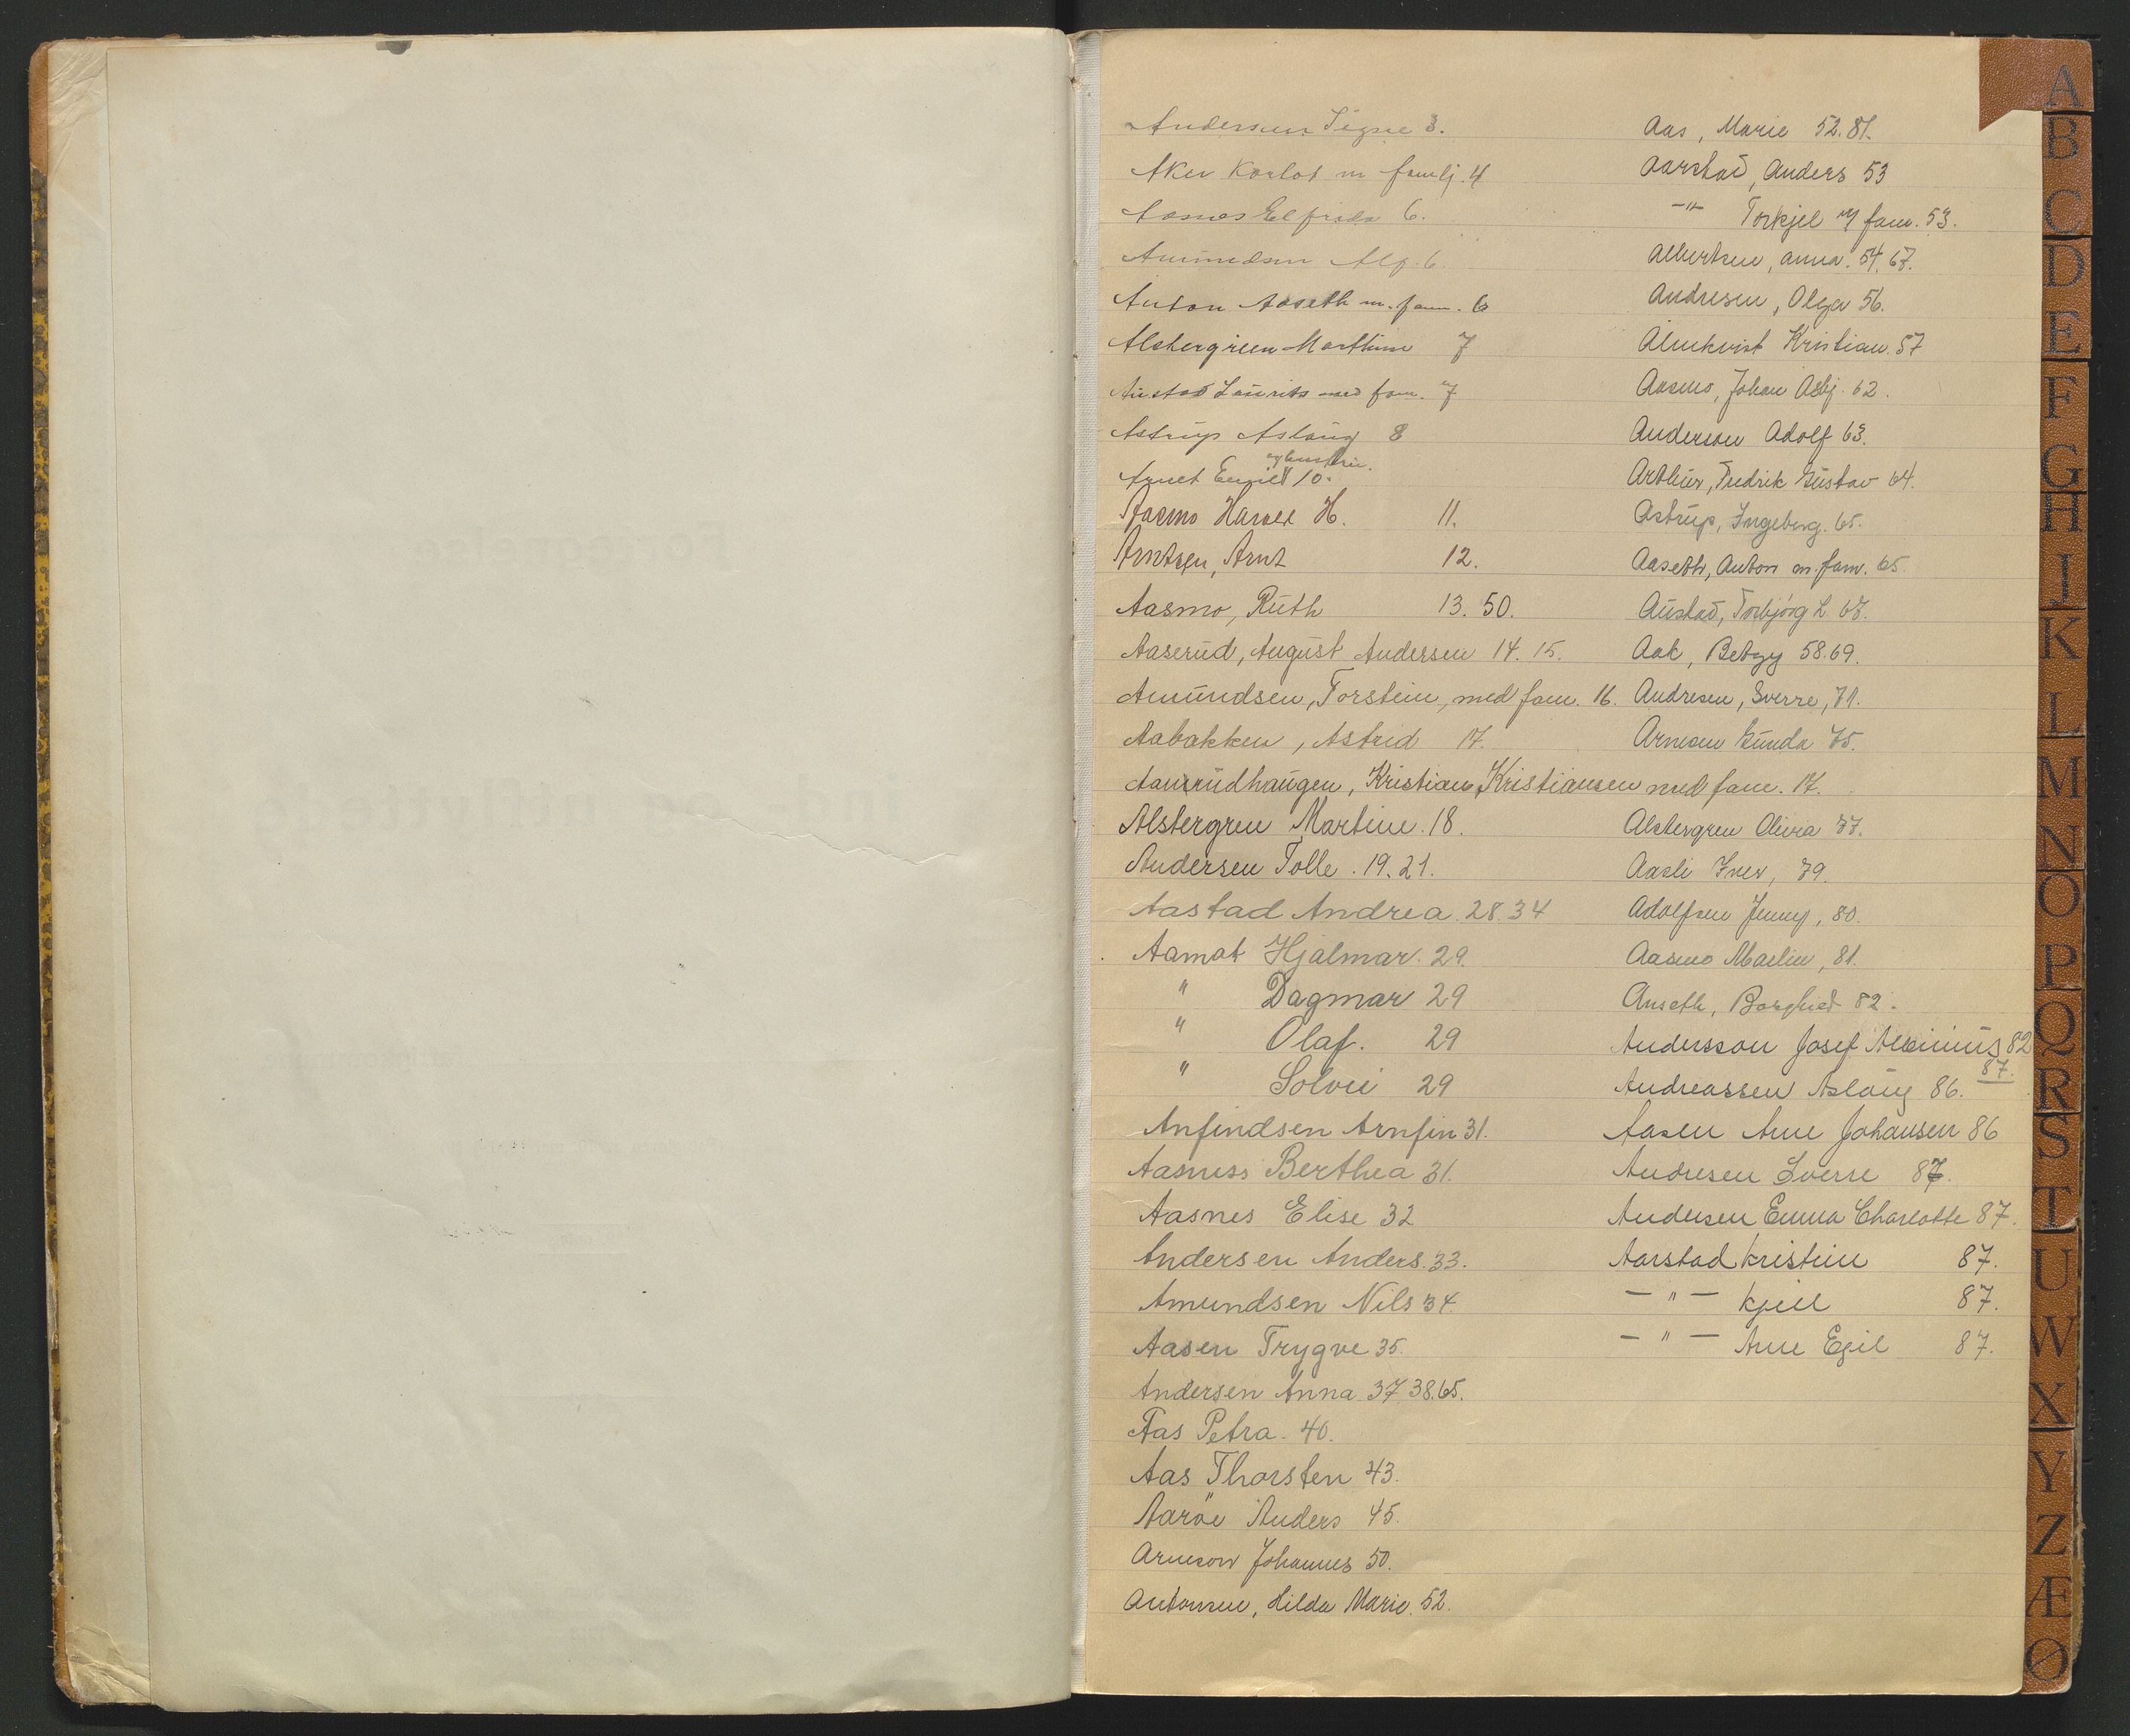 Andersen Signe 3.
Aker Karlot m familj. 4
Aasnes Elfrida 6.
Amundsen Alf. 6.
Anton Aaseth m. fam. 6
Alstergreen Marthine 7
Austad Laurits med fam. 7
Astrup Aslaug 8
og hustru.
Arnet Emil 10.
Aasmo Harald H. 11.
Arntsen, Arnt 12.
Aasmo, Ruth 13. 50.
Aaserud, August Andersen 14. 15.
Amundsen, Torstein, med fam. 16.
Aabakken, Astrid 17.
Kristian Kristiansen med fam. 17.
Alstergren Martine. 18.
Andersen Tolle. 19. 21.
Aastad Andrea. 28. 34
Aamot Hjalmar. 29.
" Dagmar 29
" Olaf. 29
" Solvei 29
Anfindsen Arnfin 31.
Aasness Berthea 31.
Aasnes Elise 32
Andersen Anders. 33.
Amundsen Nils 34.
Aasen Trygve 35.
Andersen Anna 37 38.65.
Aas Petra. 40.
Aas Thorsten 43.
Aarøe Anders 45.
Arneson Johannes 50.
Antonsen, Hilda Marie. 52.
Aas, Marie 52. 81.
Aarstad, Anders 53
-"- Torkjel m/ fam. 53.
Albertsen, Anna. 54. 67.
Andresen, Olga 56.
Almkvist Kristian. 57
Aasmo, Johan Asbj. 62.
Anderson Adolf 63.
Arthur, Fredrik Gustav 64.
Astrup, Ingeborg. 65.
Aaseth, Anton m. fam. 65.
Austad, Torbjörg L. 67.
Aak, Betzy 58.69.
Andresen, Sverre, 71.
Arnesen Gunda 75.
Alstergren Olivia 77.
Aasli Iver, 79.
Adolfsen Jenny, 80.
Aasmo Martin, 81.
Anseth, Borghed 82.
Andersson Josef 82
87.
Andreassen Aslaug 86.
Aasen Arne Johansen 86
Andresen Sverre 87.
Andersen Emma Charlotte 87.
Aarstad Kristine 87.
- " - Kjell 87.
- " - Arne Egil 87.
A
B
C
D
E
F
G
H
J
K
L
M
N
O
P
Q
R
S
T
U
W
X
Y
Z
Æ
Ø